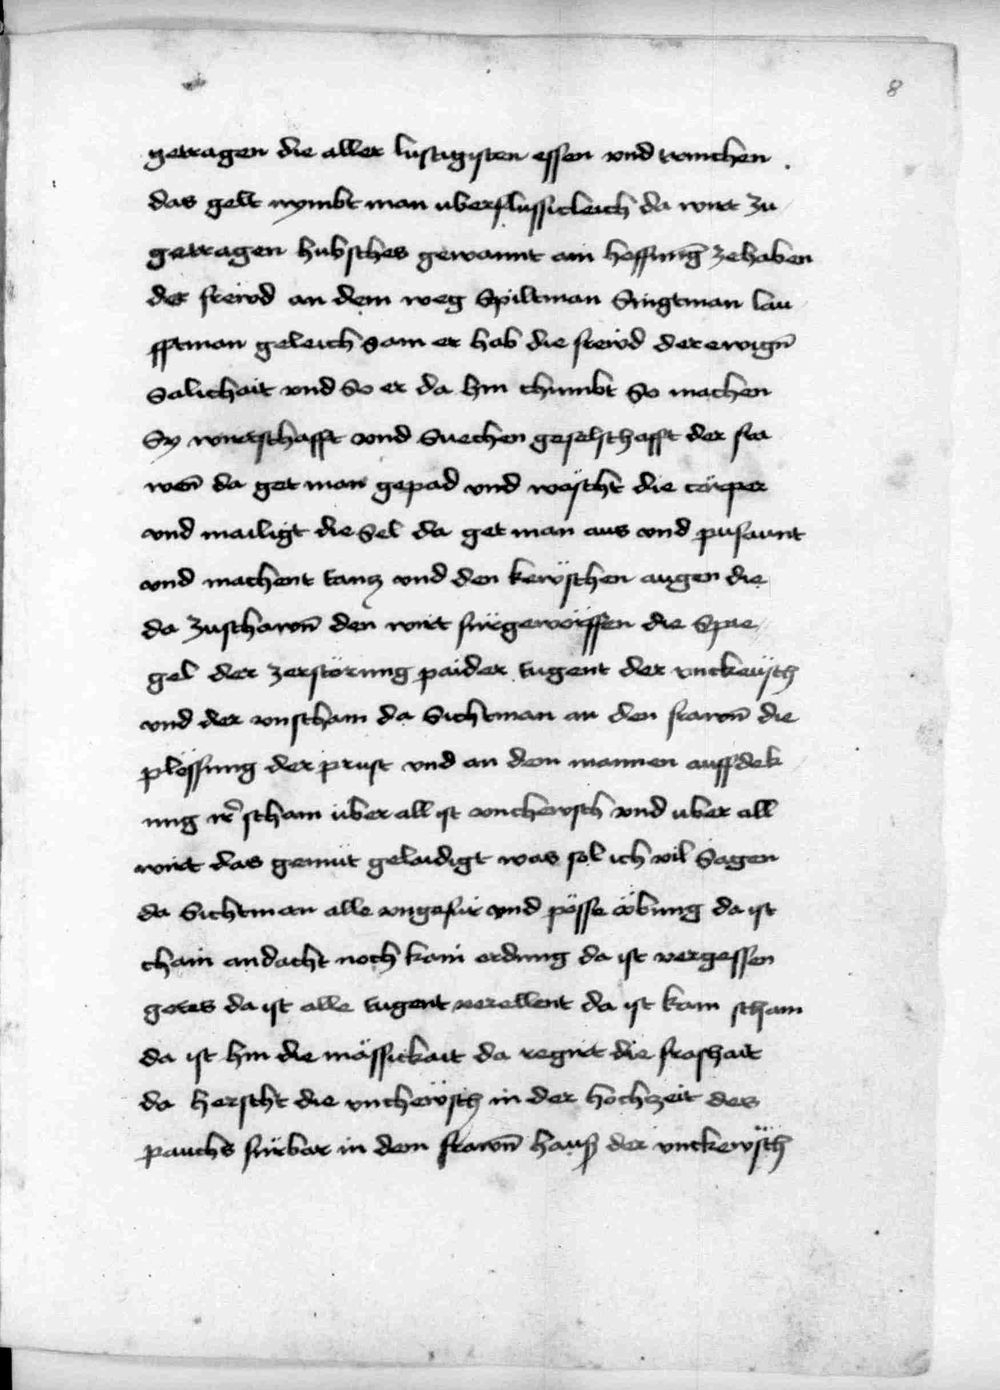 8
getragen die aller lustigisten essen vnd trincken
das gelt nymbt man uberflussicleich da wirt zu
getragen hubsches gewannt ain hoffnung̃ zehaben
der freẅd an dem weg Spiltman Singtman lau
fftman geleich sam er hab die freẅd der ewign̄
Salichait vnd So er da hin chumbt So machen
Sy wirtschafft vnd Suechen geselschafft der fra
wen̄ da get man gepad vnd wäscht die cörper
vnd mailigt die Sel da get man aus vnd pusaunt
vnd machent tancz vnd den keẅschen augen die
da zuschawn̄ den wirt fürgeworffen die Spie
gel der zerstörung paider tugent der vnckeüsch
vnd der vnscham da Sichtman an den frawn̄ die
plössung der prust vnd an dem mannen auffdek
ung ir̄ scham über all ist vnchewsch vnd uber all
wirt das gemüt gelaidigt was sol ich vil Sagen
da Sichtman alle vngefür vnd pösse übung da ist
chain andacht noch kain ordnung da ist vergessen
gotes da ist alle tugent verellent da ist kain scham
da ist hin die mässickait da regirt die frashait
da herscht die vncheẅsch in der hochzeit des
pauchs fürbar in dem frawn̄ hauß der vnkeẅsch